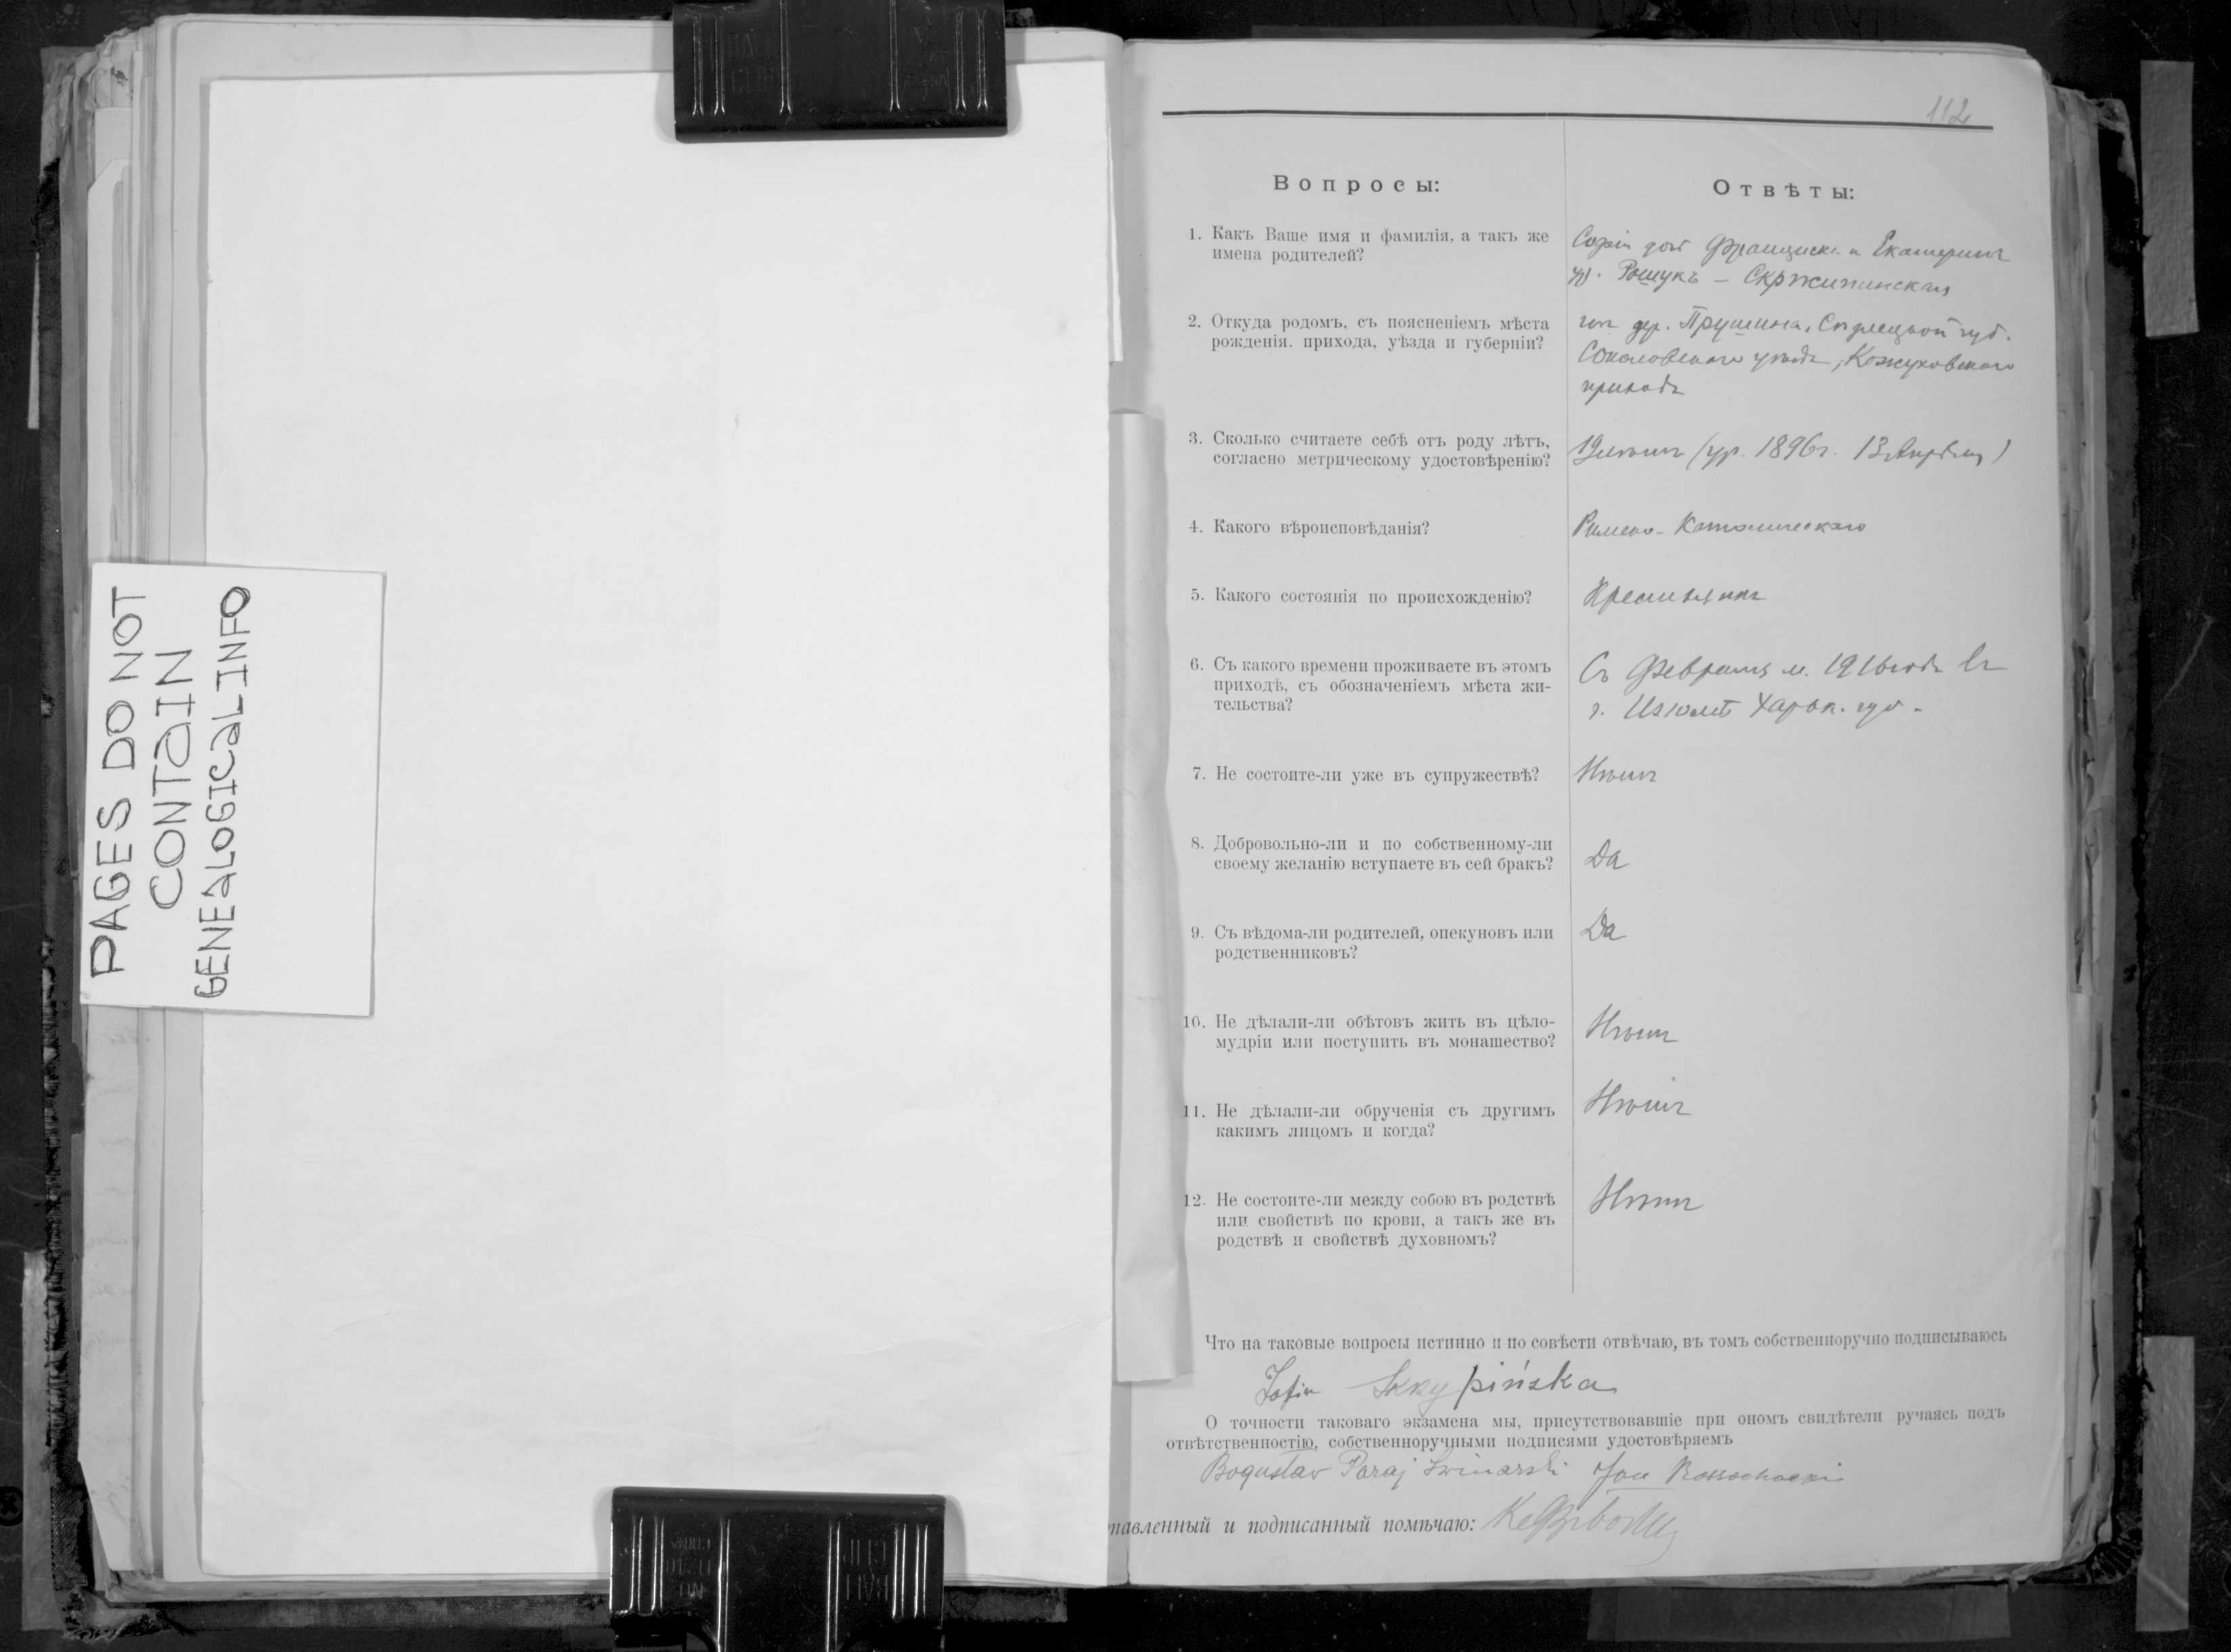 PAGES DO NOT
CONTAIN
GENEALOGICAL INFO
112
Вопросы:
Отвѣты:
1. Какъ Ваше имя и фамилія, а такъ же
имена родителей?
Софія дочь Франциска и Екатерины
ур. Рощукъ - Скржипинская
2. Откуда родомъ, съ поясненіемъ мѣста
рожденія. прихода, уѣзда и губерніи?
дер. Прушина, Сѣдлецкой губ.
Соколовскаго уѣзда, Кожуховскаго
прихода
3. Сколько считаете себѣ отъ роду лѣтъ,
согласно метрическому удостовѣренію?
19 лѣтъ (ур. 1896 г. 13 Апрѣля)
4. Какого вѣроисповѣданія?
Римско-Католическаго
5. Какого состоянія по происхожденію?
Крестьянка
6. Съ какого времени проживаете въ этомъ
приходѣ, съ обозначеніемъ мѣста жи-
тельства?
Съ Февраля м. 1916 года въ
г. Изюмѣ Харьк. губ.
7. Не состоите-ли уже въ супружествѣ?
Нѣтъ
8. Добровольно-ли и по собственному-ли
своему желанію вступаете въ сей бракъ?
Да
9. Съ вѣдома-ли родителей, опекуновъ или
родственниковъ?
Да
10. Не дѣлали-ли обѣтовъ жить въ цѣло-
мудріи или поступить въ монашество?
Нѣтъ
11. Не дѣлали-ли обрученія съ другимъ
какимъ лицомъ и когда?
Нѣтъ
12. Не состоите-ли между собою въ родствѣ
или свойствѣ по крови, а такъ же въ
родствѣ и свойствѣ духовномъ?
Нѣтъ
Что на таковые вопросы истинно и по совѣсти отвѣчаю, въ томъ собственноручно подписываюсь
Zofia Skrzypińska
О точности таковаго экзамена мы, присутствовавшіе при ономъ свидѣтели ручаясь подъ
отвѣтственностію, собственноручными подписями удостовѣряемъ
Bogusław Poraj Swinarski Jan Rossochacki
тавленный и подписанный помѣчаю: